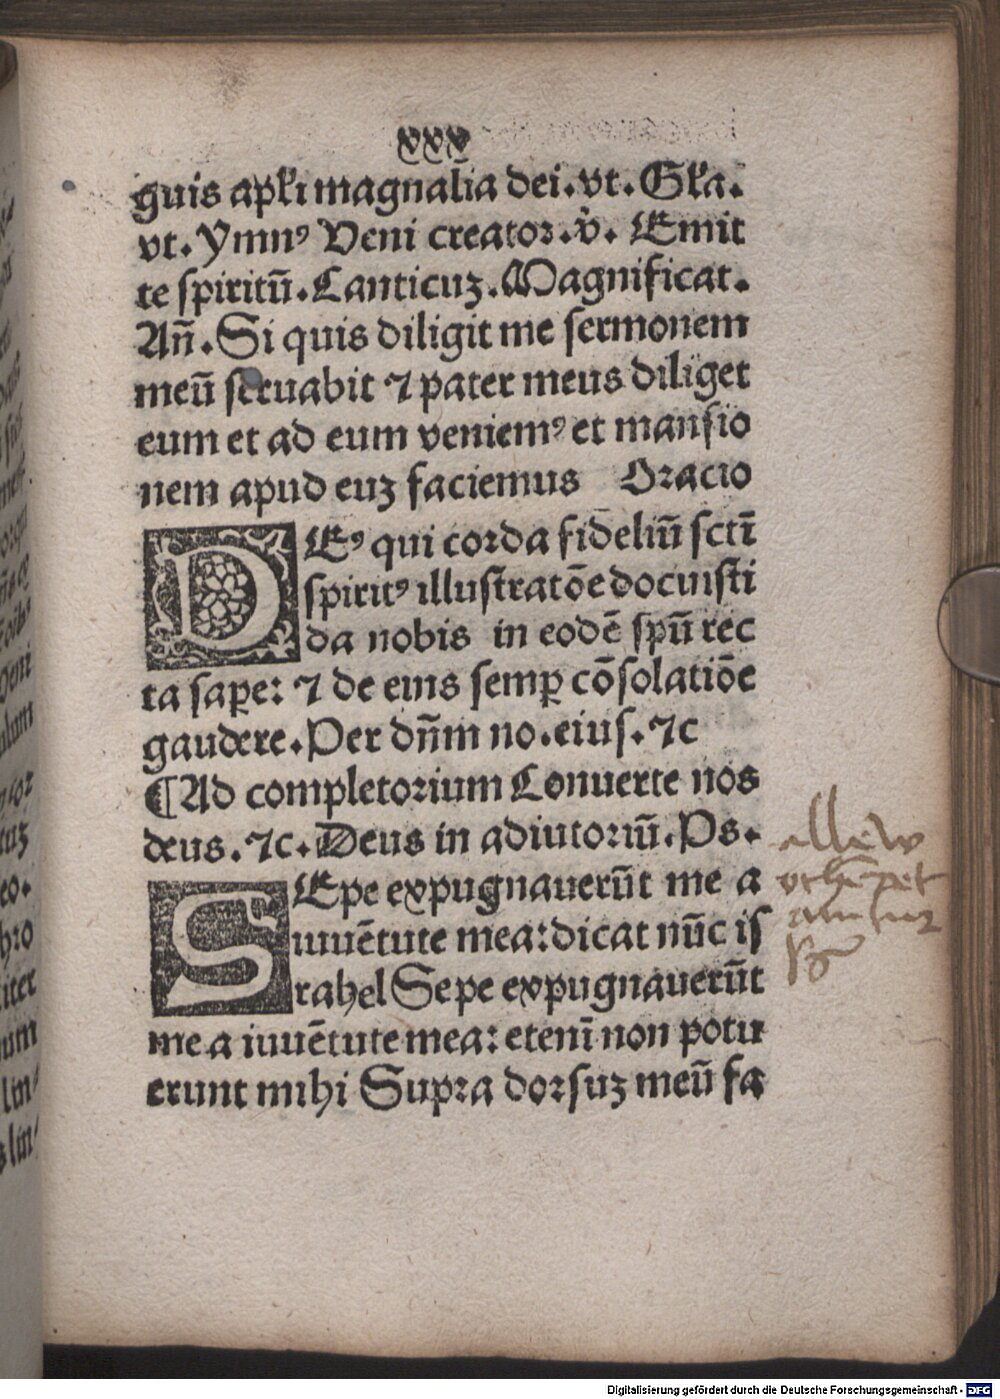 xxx
guis apl̄i magnalia dei. vt. Gl̄a.
vt. Ymnꝰ Veni creator. v̄. Emit
te spiritū. Canticuȝ. Magnificat.
Añ. Si quis diligit me sermonem
meū seruabit ⁊ pater meus diliget
eum et ad eum veniemꝰ et mansio
nem apud euȝ faciemus Oracio
DEꝰ qui corda fideliū sctī
spiritꝰ illustratōe docuisti
da nobis in eodē spū rec
ta saꝑe: ⁊ de eius semꝑ cōsolatiōe
gaudere. Per dn̄m no. eius. ⁊c
¶Ad completorium Conuerte nos
deus. ⁊c. Deus in adiutoriū. Ps.
SEpe expugnauerūt me a
iuuētute mea: dicat nūc is
rahel Sepe expugnauerūt
me a iuuētute mea: etenī non potu
erunt mihi Supra dorsuȝ meū fa
Digitalisierung gefördert durch die Deutsche Forschungsgemeinschaft - DFG